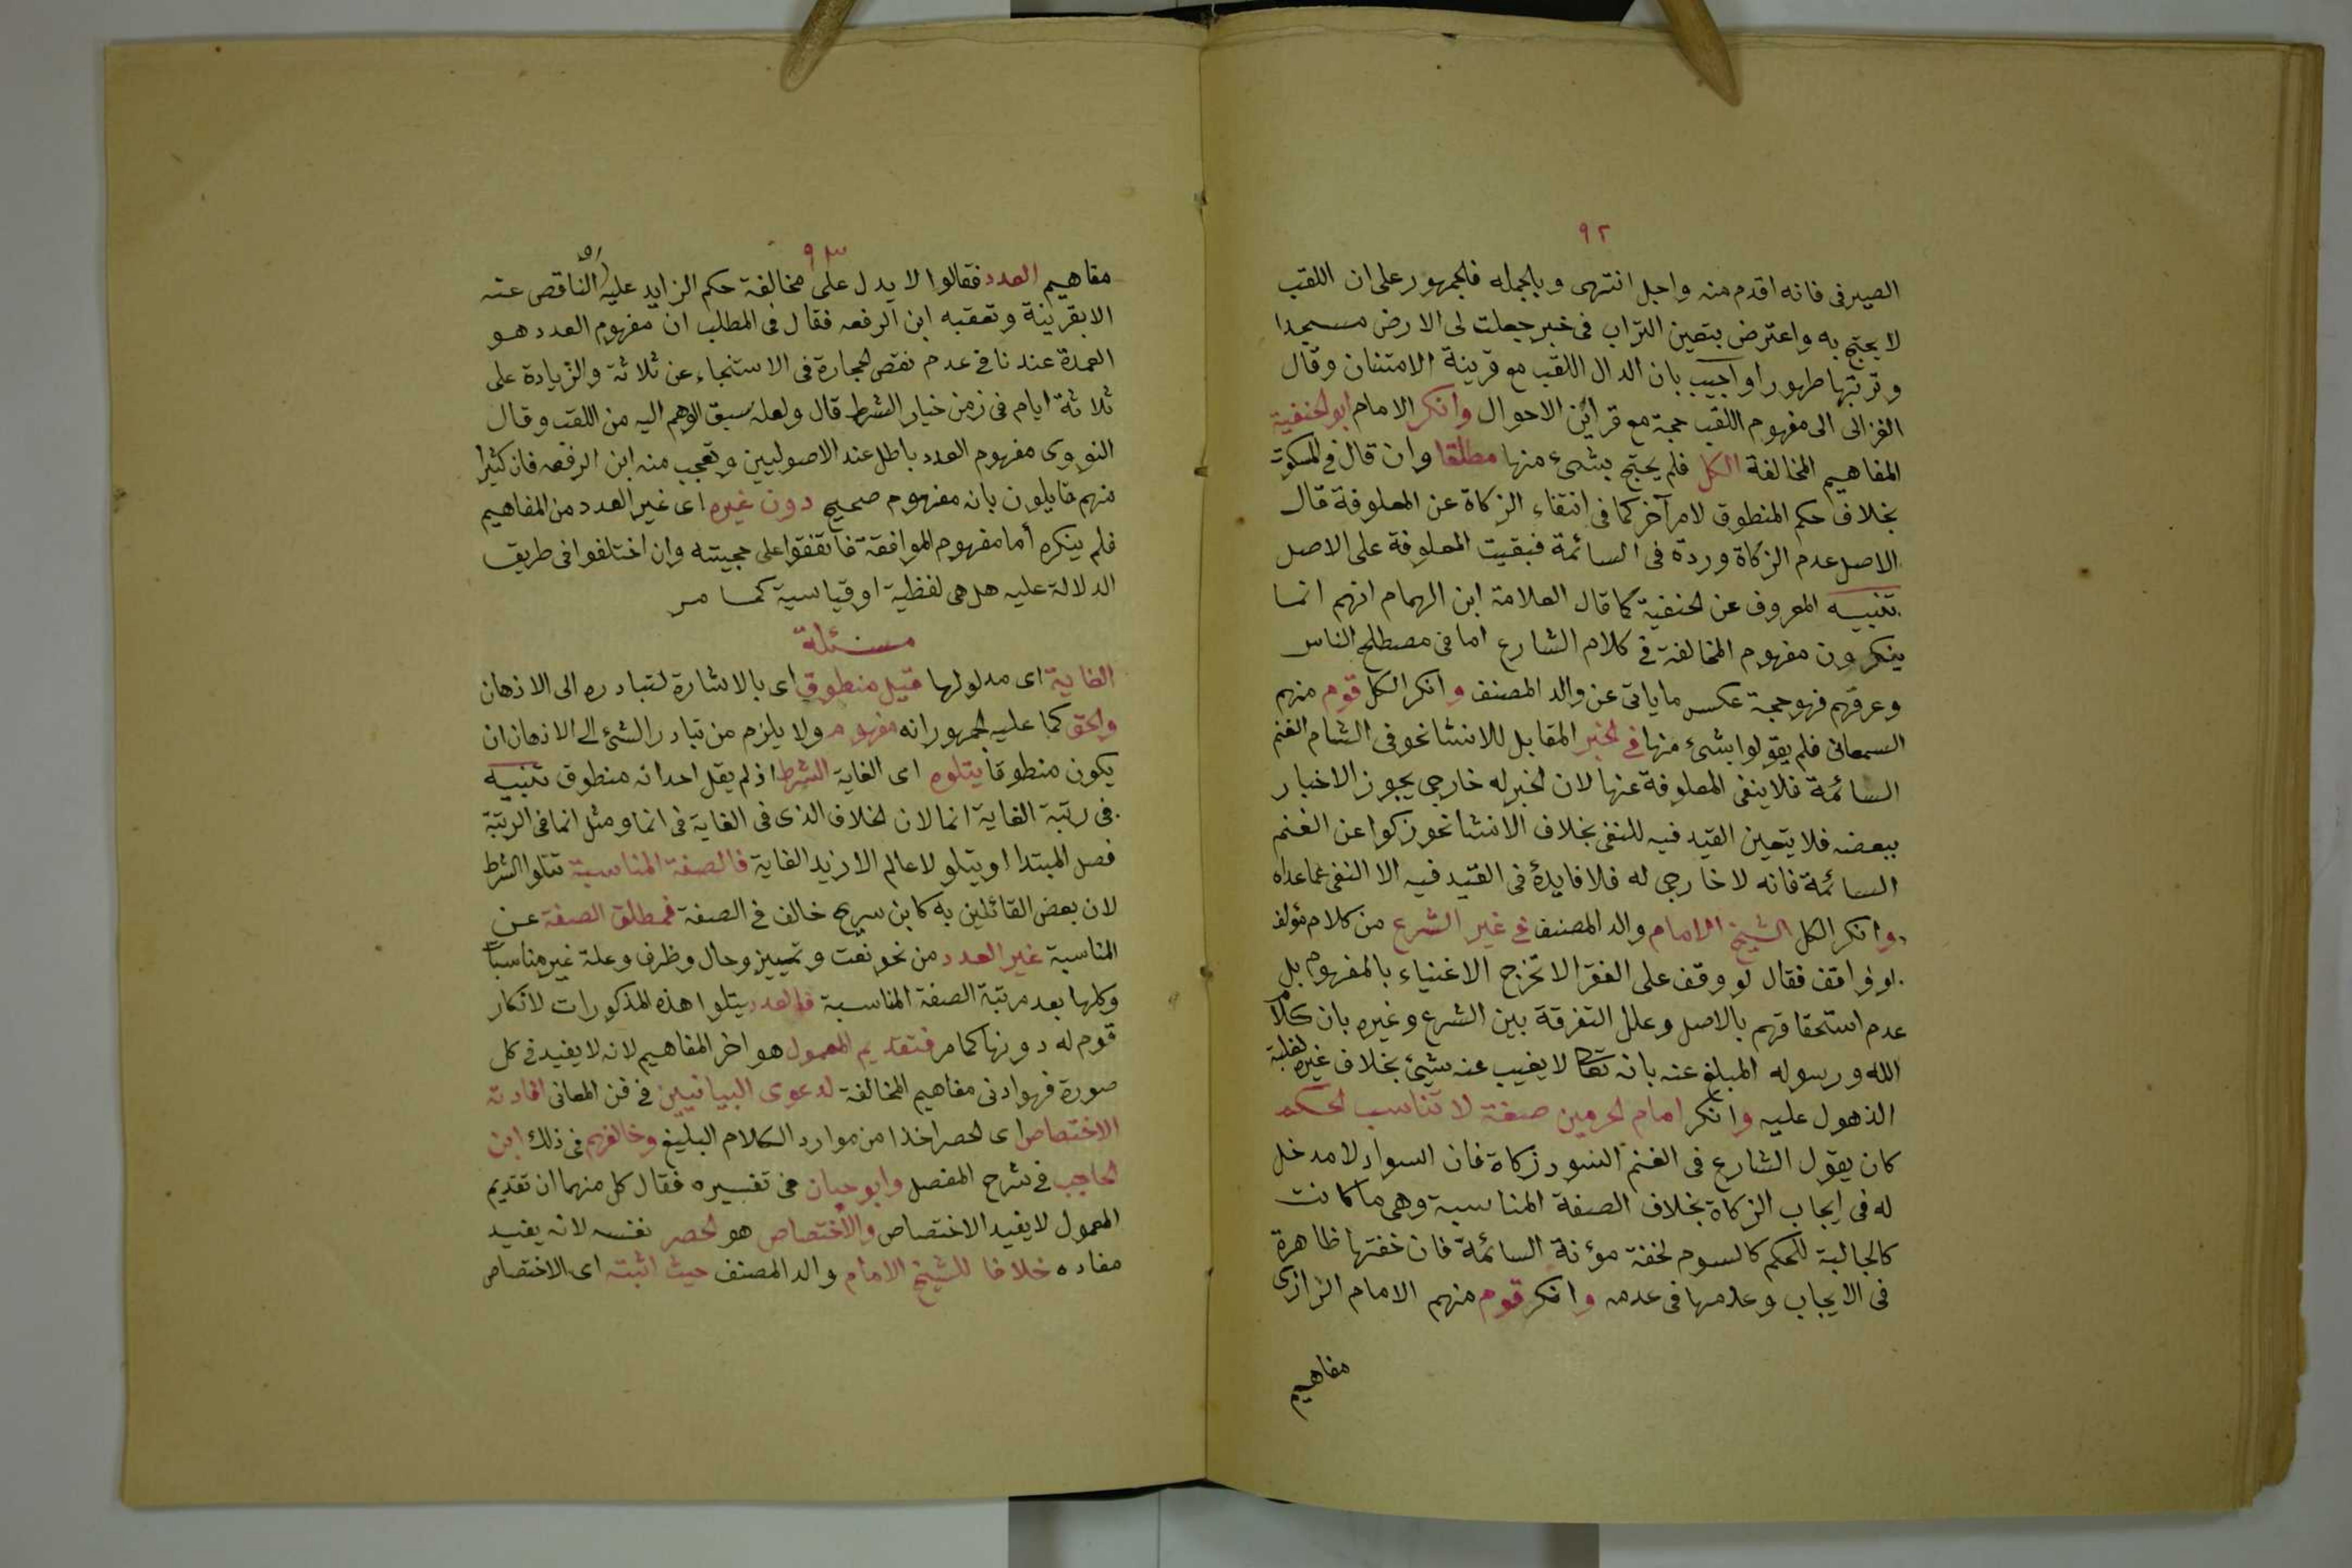 ٩٢
الصيرفى فانه اقدم منه واجل انتهى وبالجمله فلجمهور على ان اللقب
لا يحتج به واعترض بتعين التراب فى خبر جعلت لى الارض مسجدا
وتربتها طهورا واجيب بان الدال اللقب مع قرينة الامتنان وقال
الغزالى الى مفهوم اللقب حجة مع قراين الاحوال وانكر الامام ابو لحنفية
المفاهيم المخالفة الكل فلم يحتج بشىء منها مطلقا وان قال فى المسكوت
بخلاف حكم المنطوق لامر آخر كما فى انتفاء الزكاة عن المعلوفة قال
الاصل عدم الزكاة وردة فى السائمة فبقيت المعلوفة على الاصل
تنبيه المعروف عن لحنفية كما قال العلامة ابن الهمام انهم انما
ينكرون مفهوم المخالفة فى كلام الشارع اما فى مصطلح الناس
وعرفهم فهو حجة عكس ماياتى عن والد المصنف وانكر الكل قوم منهم
السمعانى فلم يقولوا بشىء منها فى لخبر المقابل للانشا نحو فى الشام الغنم
السائمة فلا ينفى المعلوفة عنها لان لخبر له خارجى يجوز الاخبار
ببعضه فلا يتعين القيد فيه للنفى بخلاف الانشا نحو زكوا عن الغنم
السائمة فانه لا خارجى له فلا فايدة فى القيد فيه الا النفى عما عداه
وانكر الكل الشيخ الامام والد المصنف فى غير الشرع من كلام مؤلف
او واقف فقال لو وقف على الفقرا لا تخرج الاغنياء بالمفهوم بل
عدم استحقاقهم بالاصل وعلل التفرقة بين الشرع وغيره بان كلام
الله ورسوله المبلغ عنه بانه تعا لا يغيب عنه شىء بخلاف غيره لغلبة
الذهول عليه وانكر امام لحرمين صفة لا تناسب لحكم
كان يقول الشارع فى الغنم السود زكاة فان السواد لا مدخل
له فى ايجاب الزكاة بخلاف الصفة المناسبة وهى ما كانت
كالجالبة للحكم كالسوم لخفة مؤنة السائمة فان خفتها ظاهرة
فى الايجاب وعدمها فى عدمه وانكر قوم منهم الامام الرازى
مفاهيم
٩٣
مفاهيم العدد فقالوا لا يدل على مخالفة حكم الزايد عليه او الناقص عنه
الا بقرينة وتعقبه ابن الرفعه فقال فى المطلب ان مفهوم العدد هو
العمدة عندنا فى عدم نقص لحجارة فى الاستنجاء عن ثلاثة والزيادة على
ثلاثة ايام فى زمن خيار الشرط قال ولعله سبق الوهم اليه من اللقب وقال
النووى مفهوم العدد باطل عند الاصوليين وتعجب منه ابن الرفعه فان كثيرا
منهم قايلون بانه مفهوم صحيح دون غيره اى غير العدد من المفاهيم
فلم ينكره أما مفهوم الموافقة فاتفقوا على حجيته وان اختلفوا فى طريق
الدلالة عليه هل هى لفظية او قياسية كما مر
مسئلة
الغاية اى مدلولها قيل منطوق اى بالاشارة لتبادره الى الاذهان
ولحق كما عليه لجمهور انه مفهوم ولا يلزم من تبادر الشئ الى الاذهان ان
يكون منطوقا يتلوه اى الغاية الشرط اذ لم يقل احد انه منطوق تنبيه
فى رتبة الغاية انما لان لخلاف الذى فى الغاية فى انما ومثل انما فى الرتبة
فصل المبتدا ويتلو لا عالم الا زيد الغاية فالصفة المناسبة تتلوا الشرط
لان بعض القائلين به كابن سريج خالف فى الصفة فمطلق الصفة عن
المناسبة غير العدد من نحو نعت وتمييز وحال وظرف وعلة غير مناسبات
وكلها بعد مرتبة الصفة المناسبة فالعدد يتلوا هذه المذكورات لانكار
قوم له دونها كما مر فتقديم المعمول هو اخر المفاهيم لانه لا يفيد فى كل
صورة فهو ادنى مفاهيم المخالفة لدعوى البيانيين فى فن المعانى افادته
الاختصاص اى لحصر اخذا من موارد الكلام البليغ وخالفهم فى ذلك ابن
لحاجب فى شرح المفصل وابو حيان فى تفسيره فقال كل منهما ان تقديم
المعمول لا يفيد الاختصاص والاختصاص هو لحصر نفسه لانه يفيد
مفاده خلافا للشيخ الامام والد المصنف حيث اثبته اى الاختصاص